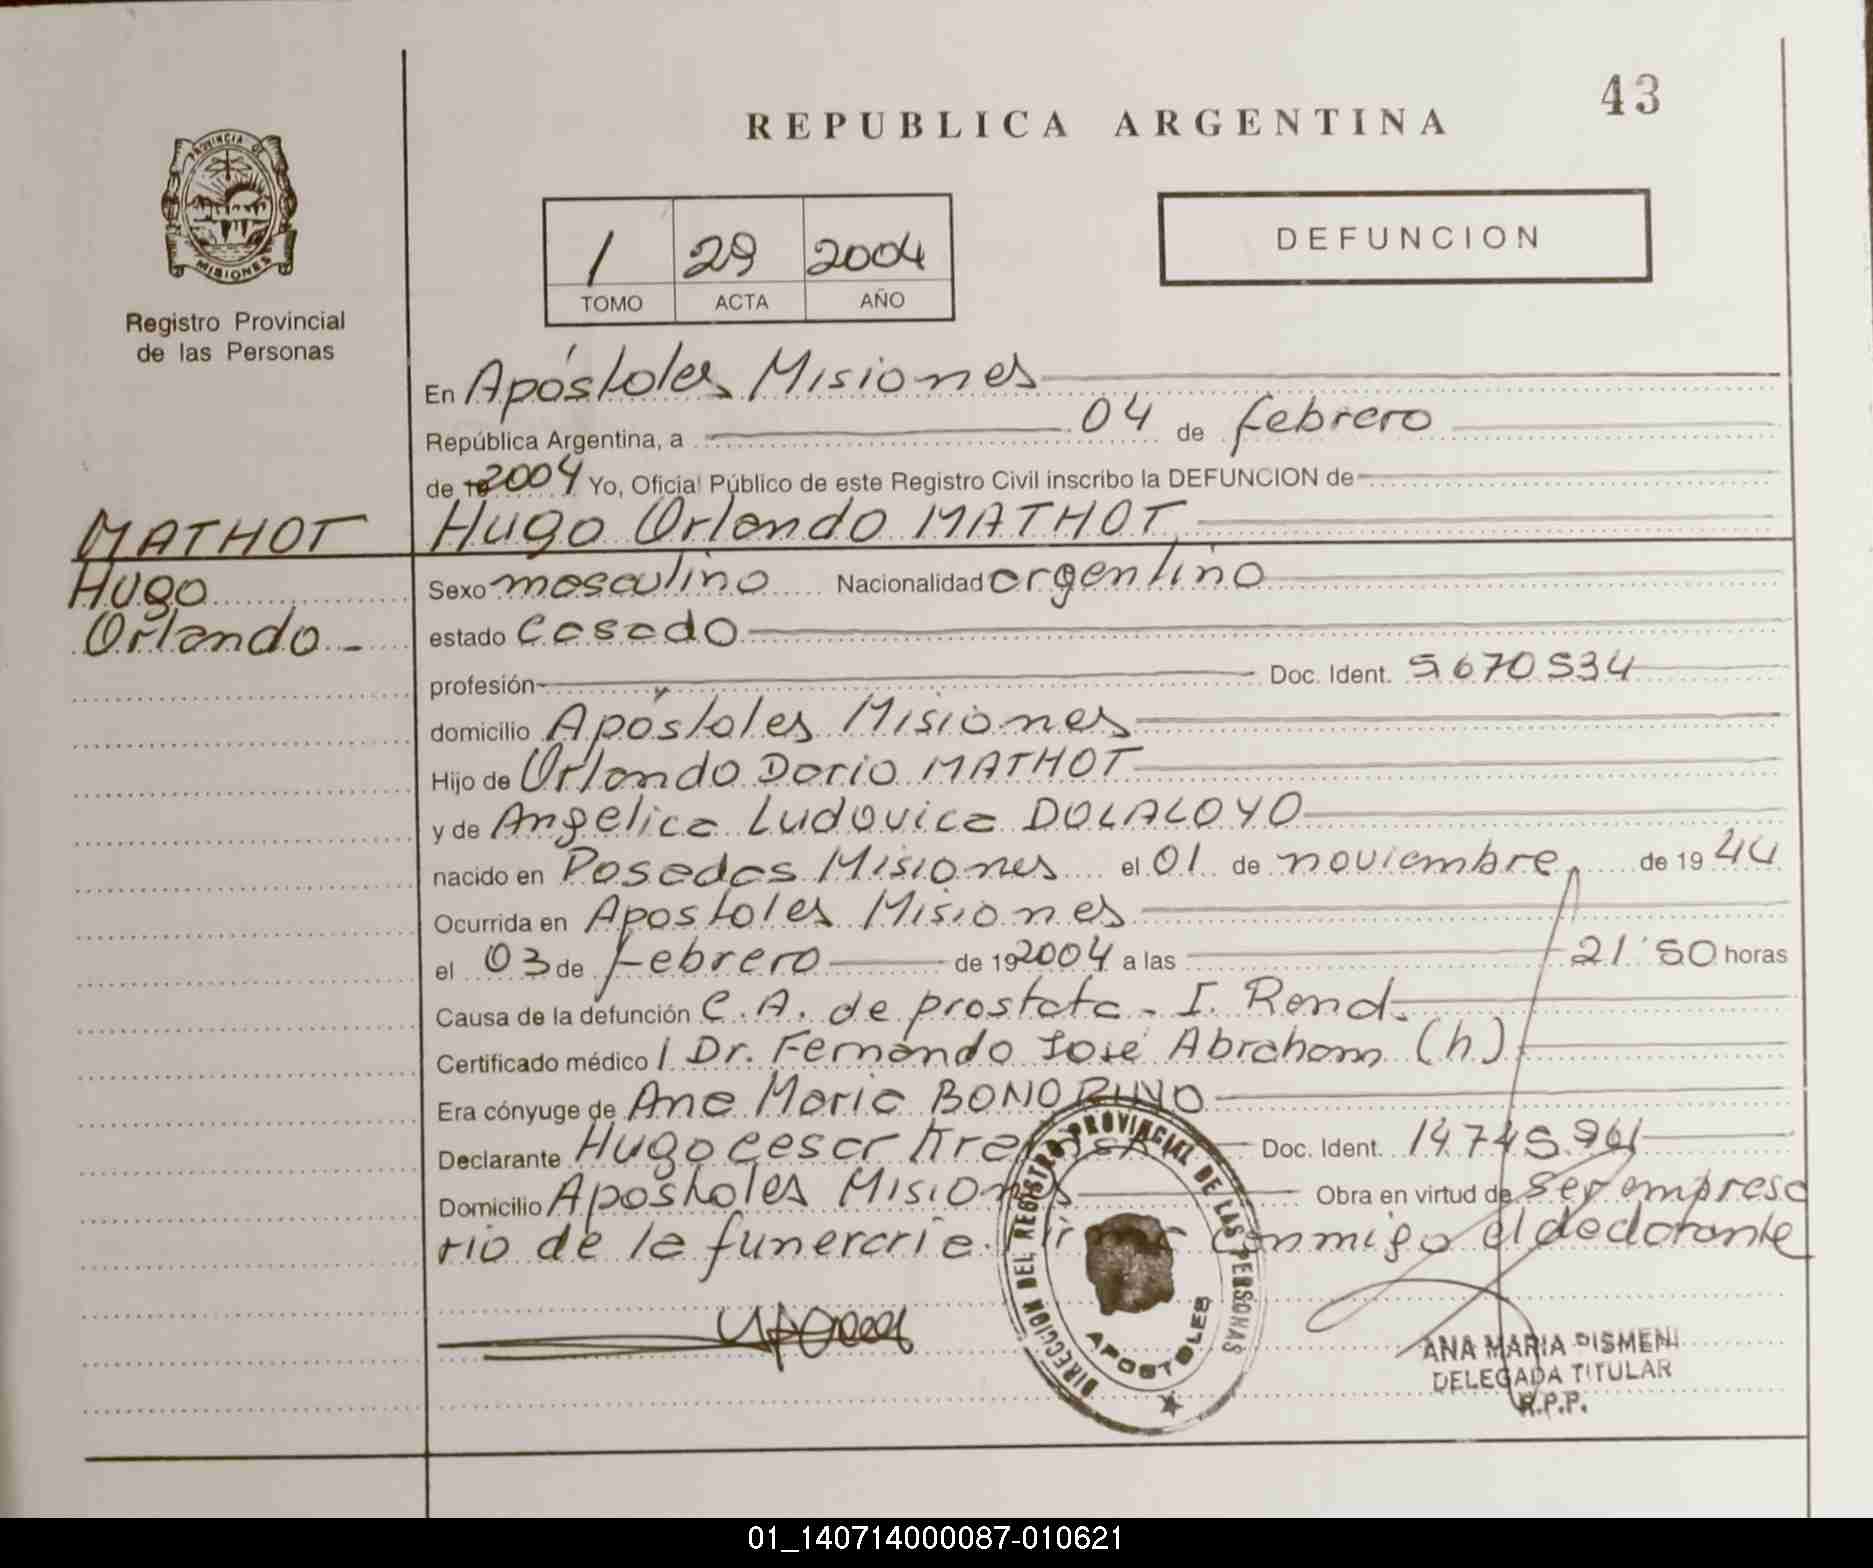 43
REPUBLICA ARGENTINA
PROVINCIA DE
MISIONES
Registro Provincial
de las Personas
1 29 2004
TOMO ACTA AÑO
DEFUNCION
En Apóstoles Misiones
República Argentina, a 04 de febrero
de 19 2004 Yo, Oficial Público de este Registro Civil inscribo la DEFUNCION de
MATHOT
Hugo
Orlando -
Hugo Orlando MATHOT
Sexo masculino Nacionalidad argentino
estado Casado
profesión Doc. Ident. 5670534
domicilio Apóstoles Misiones
Hijo de Orlando Dario MATHOT
y de Angelica Ludovica DOLALOYO
nacido en Posadas Misiones el 01 de noviembre de 19 44
Ocurrida en Apostoles Misiones
el 03 de febrero de 19 2004 a las 21:50 horas
Causa de la defunción C.A. de prostata - I. Renal.
Certificado médico Dr. Fernando José Abraham (h)
Era cónyuge de Ana Maria BONORINO
Declarante Hugo Cesar Doc. Ident. 14745961
Domicilio Apostoles Misiones Obra en virtud de ser empresa
rio de la funeraria. conmigo el declarante
DIRECCION DEL REGISTRO PROVINCIAL DE LAS PERSONAS
APOSTOLES
ANA MARIA DISMENI
DELEGADA TITULAR
R.P.P.
01_140714000087-010621